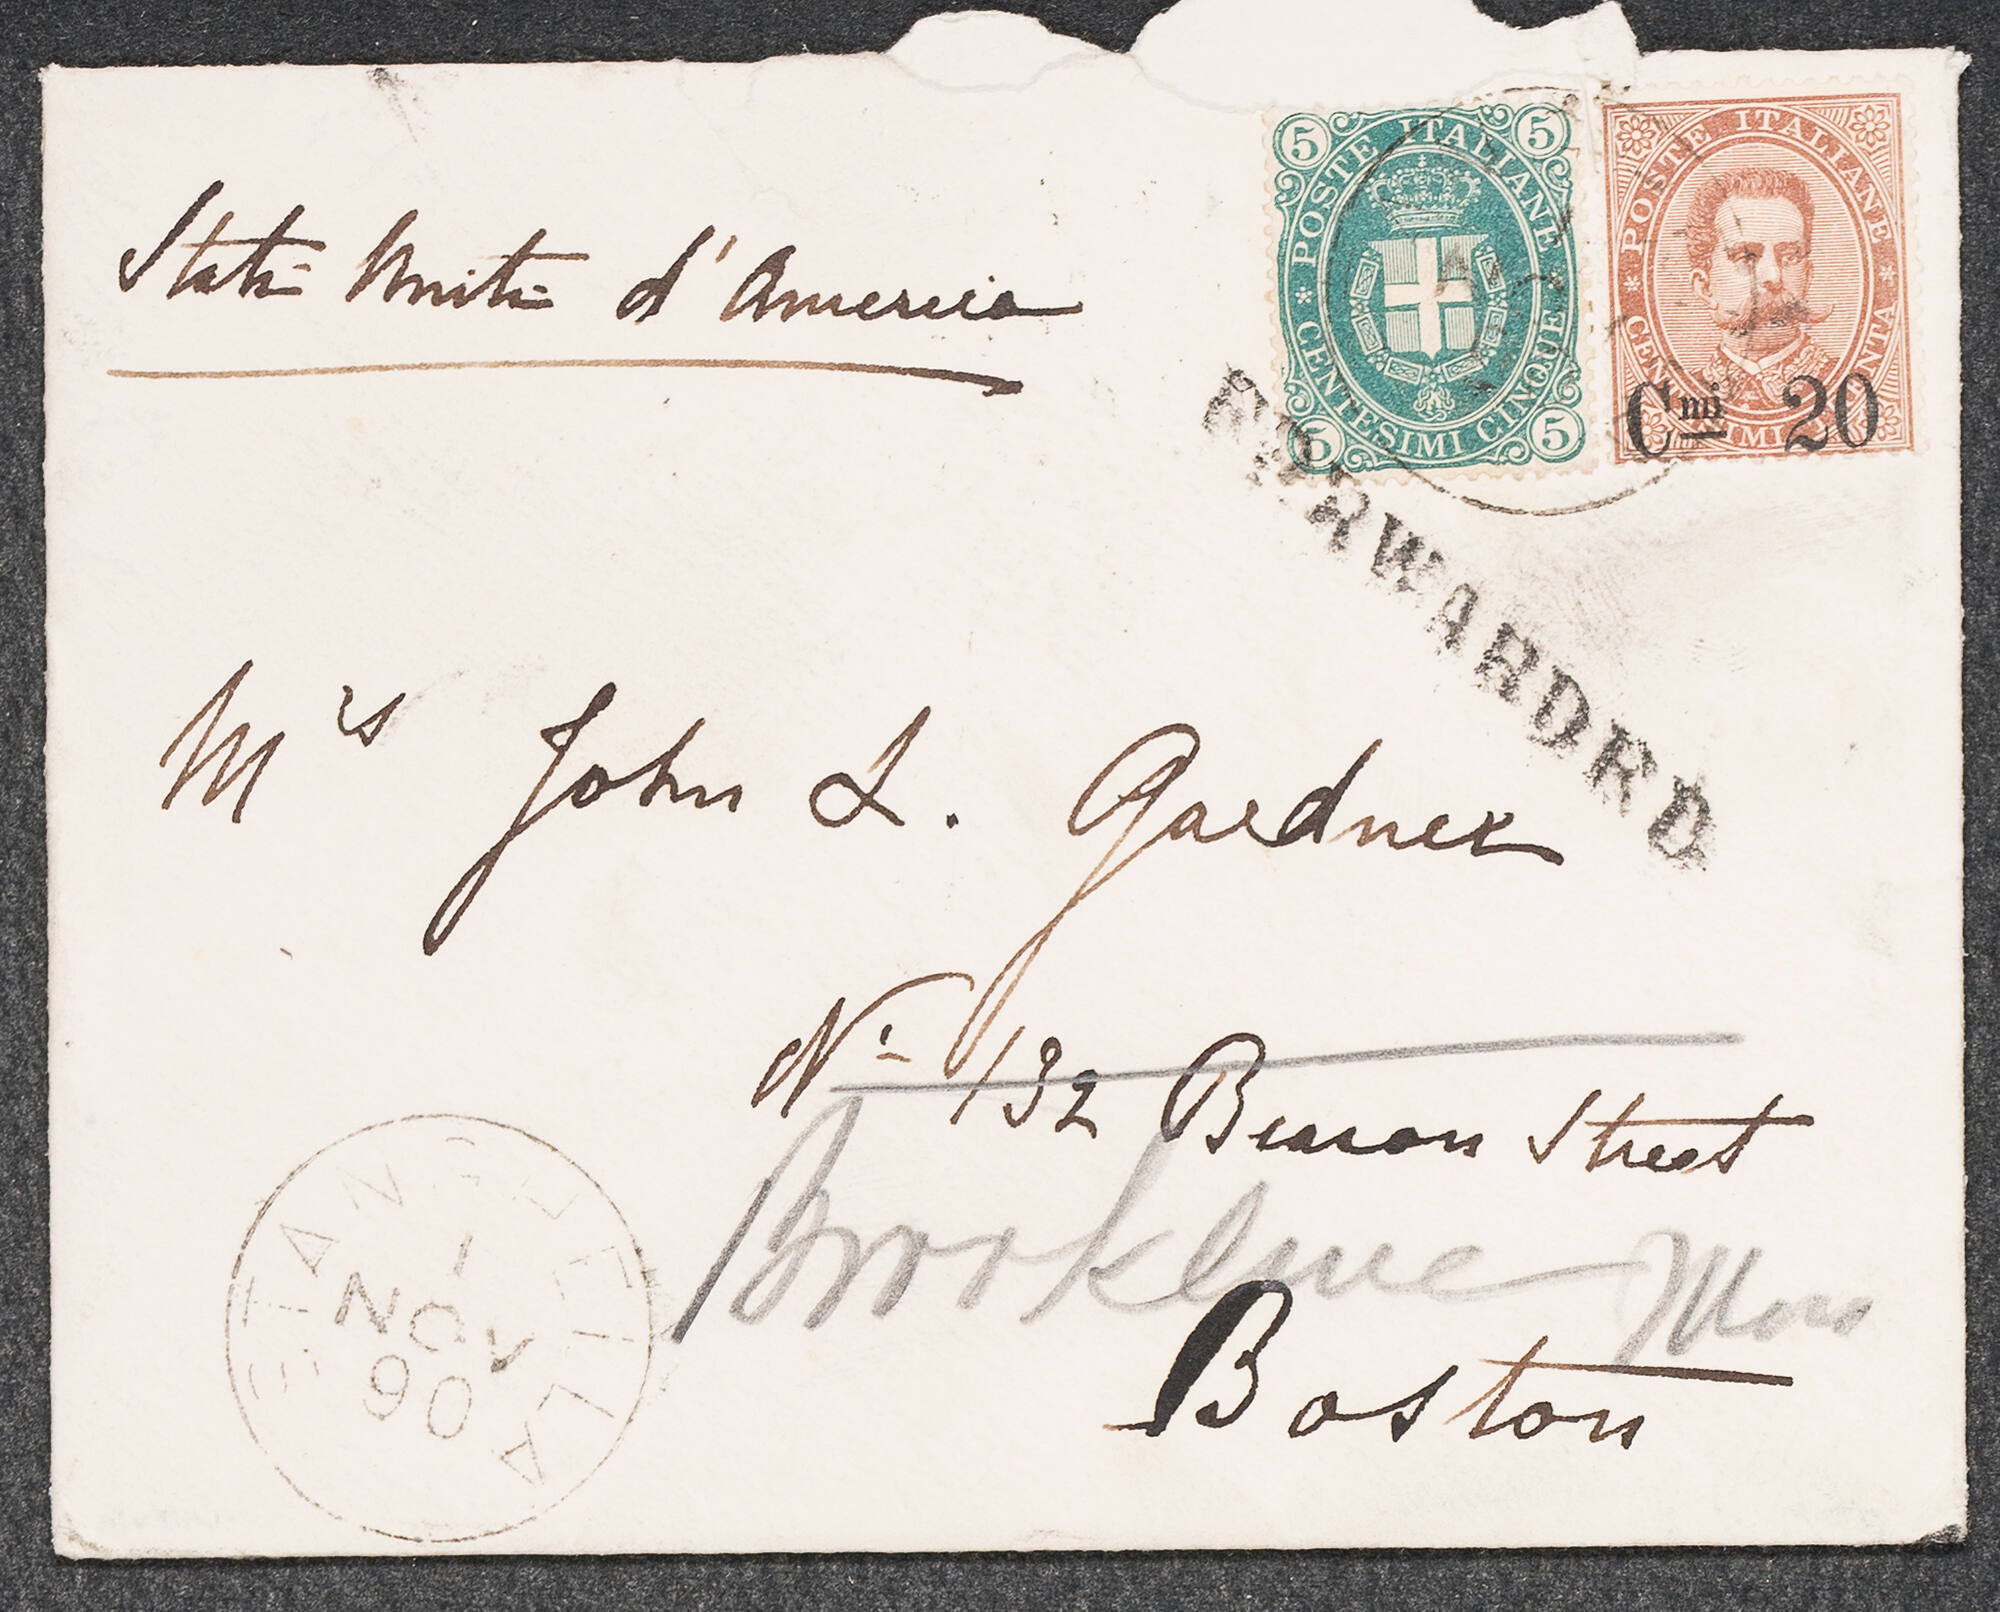 Stati Uniti d'America
5 5
POSTE ITALIANE
CENTESIMI CINQUE
5 5
POSTE ITALIANE
Cmi 20
FORWARDED
Mrs John L. Gardner
No 132 Beacon Street
Brookline Mass
Boston
STAN
1
NOV
90